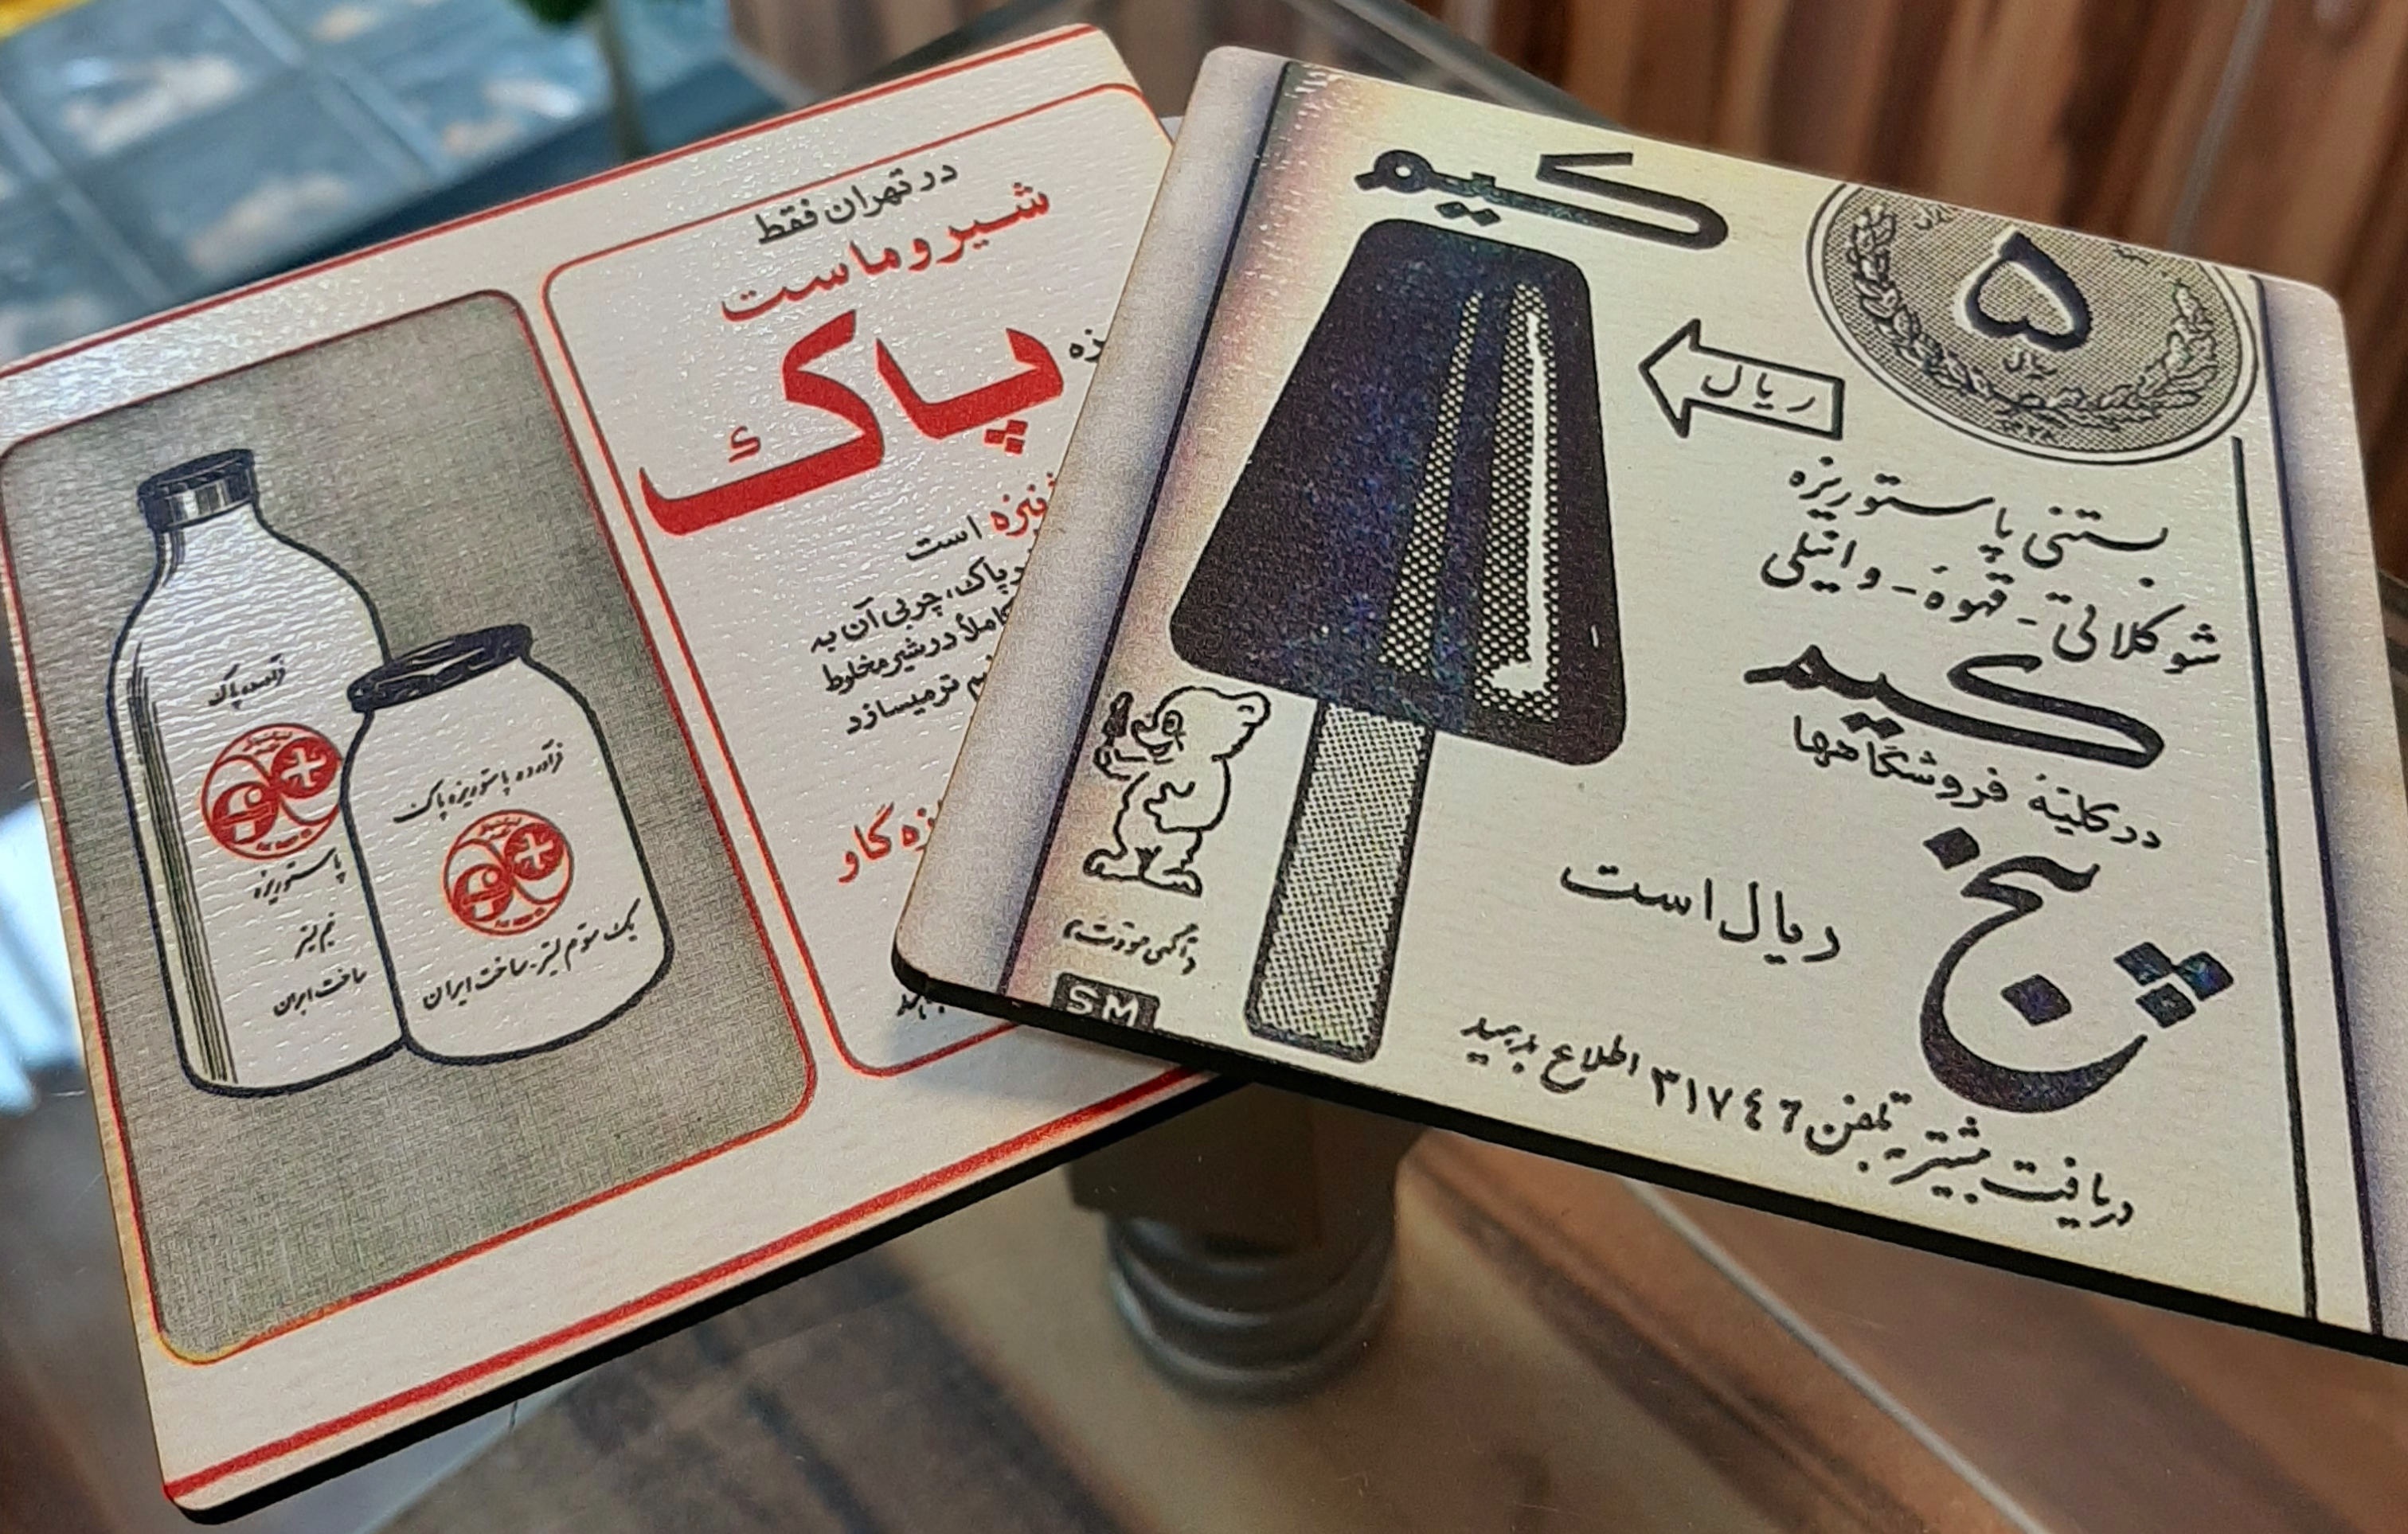 در تهران فقط
شیر و ماست
پاک
است
پاک، چربی آن به
کاملاً در شیر مخلوط
ترمیسازد
گاو
فرآورده پاک
پاستوریزه
نیم لیتر
ساخت ایران
فرآورده پاستوریزه پاک
یک سوم لیتر - ساخت ایران
کیم
۵
ریال
ریال
بستنی پاستوریزه
شوکلاتی - قهوه - وانیلی
کیم
در کلیهٔ فروشگاهها
پنج
ریال است
SM
دریافت بیشتر به تلفن ۳۱۷۴۶ اطلاع بدهید